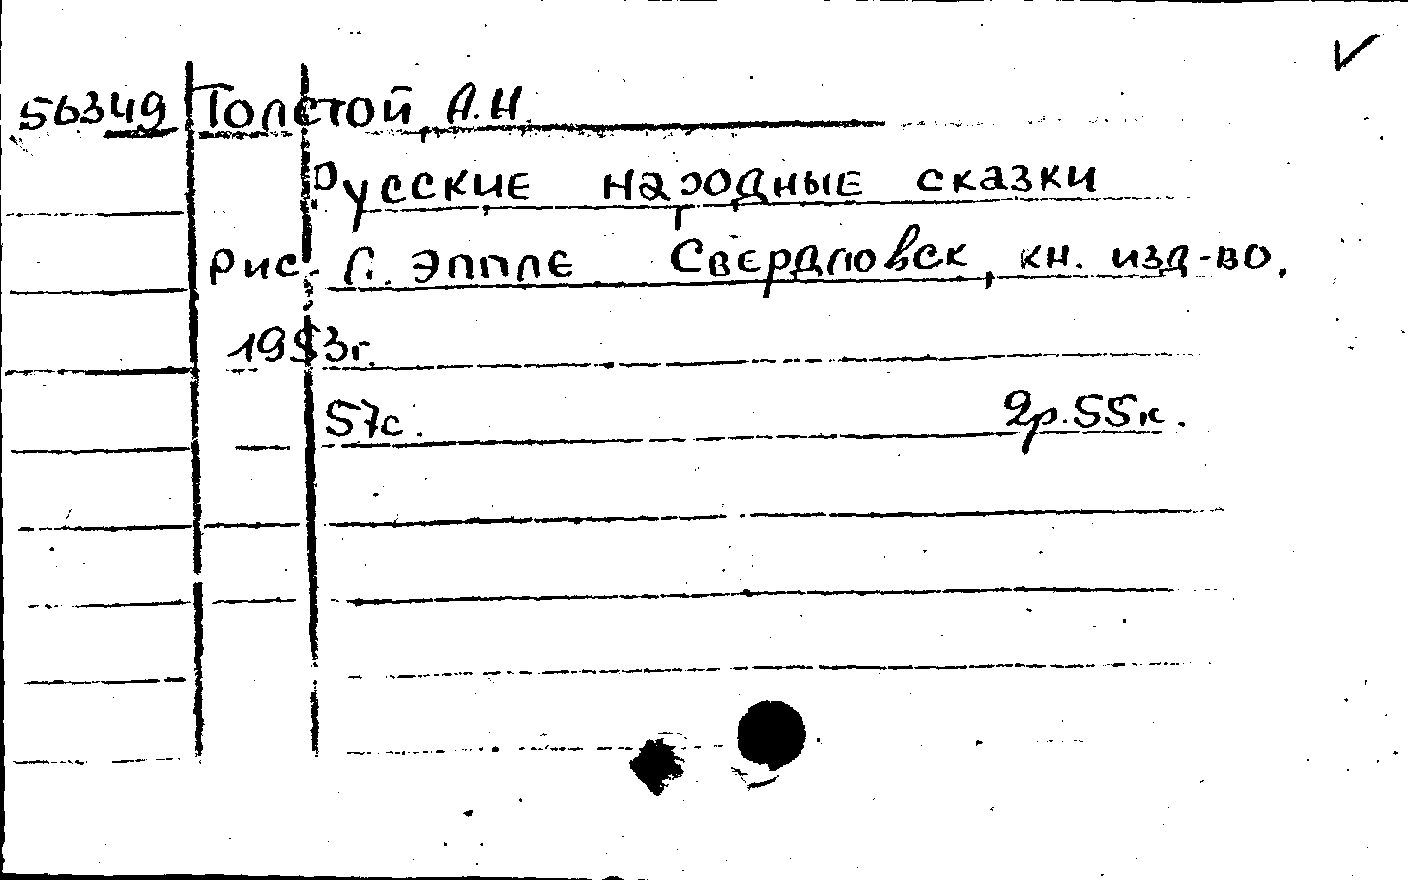 56349 Толстой А.Н.
Русские народные сказки
Рис. Л. Эппле Свердловск, кн. изд-во,
1953г.
57с. 2р.55к.